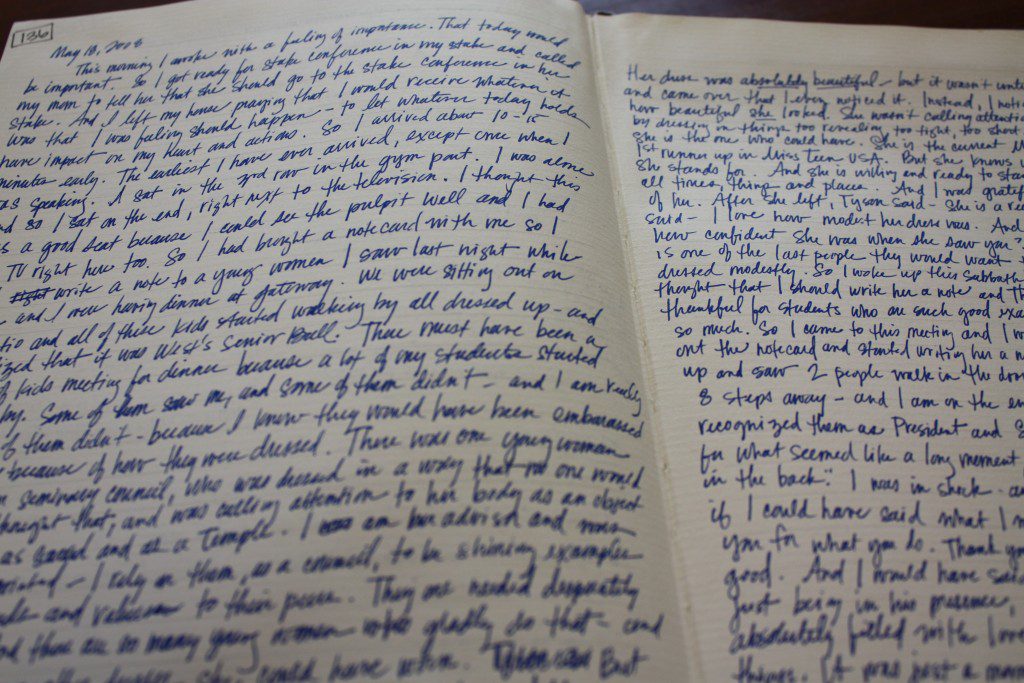 136
May 18, 2008
This morning I awoke with a feeling of importance. That today would
be important. So I got ready for stake conference in my stake and called
my mom to tell her that she should go to the stake conference in her
stake. And I left my house praying that I would receive whatever it
was that I was feeling should happen - to let whatever today holds
have impact on my heart and actions. So I arrived about 10-15
minutes early. The earliest I have ever arrived, except once when I
as speaking. I sat in the 3rd row in the gym part. I was alone
nd so I sat on the end, right next to the television. I thought this
s a good seat because I could see the pulpit well and I had
TV right here too. So I had brought a notecard with me so I
write a note to a young women I saw last night while
- and I over having dinner at gateway. We were sitting out on
tio and all of these kids started walking by all dressed up - and
ized that it was West's Senior Ball. There must have been a
f kids meeting for dinner because a lot of my students started
by. Some of them saw me, and some of them didn't - and I am really
f them didn't - because I know they would have been embarassed
because of how they were dressed. There was one young woman
n seminary council, who was dressed in a way that no one would
thought that, and was calling attention to her body as an object
as and as a Temple. I am her advisor and was
- I rely on them, as a council, to be shining examples
and values to their peers. They are needed desperately
nd there are so many young women who gladly do that - and
she could have when. But
Her dress was absolutely beautiful - but it wasn't until
and came over that I even noticed it. Instead, I noti
how beautiful she looked. She wasn't calling attention
by dressing in things too revealing, too tight, too short
She is the one who could have. She is the current M
1st runner up in Miss Teen USA. But she knows w
she stands for. And she is willing and ready to stan
all times, things and places. And I was gratef
of her. After she left, Tyson said - She is a rea
said - I love how modest her dress was. And
how confident she was when she saw you?
is one of the last people they would want
dressed modestly. So I woke up this Sabbath
thought that I should write her a note and th
thankful for students who are such good exa
so much. So I came to this meeting and I w
out the notecard and started writing her a n
up and saw 2 people walk in the doo
8 steps away - and I am on the en
recognized them as President and S
for what seemed like a long moment
in the back." I was in shock - an
if I could have said what I w
you for what you do. Thank you
good. And I would have said
just being in his presence,
absolutely filled with love
things. It was just a mom